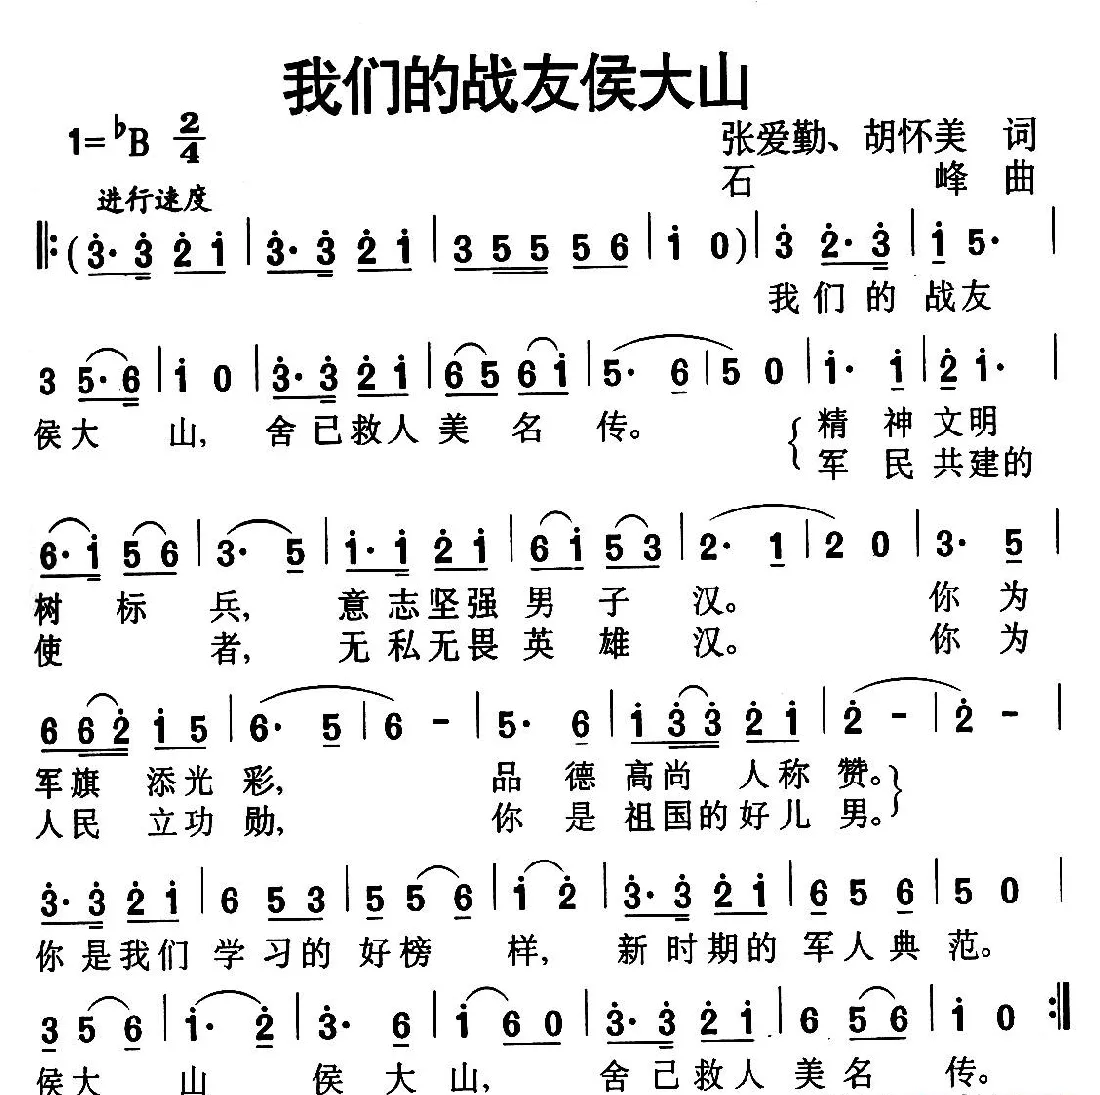 我们的战友侯大山
1=♭B 2/4
张爱勤、胡怀美 词
石 峰 曲
进行速度
‖:(3̇· 3̇ 2̇ 1̇ | 3̇· 3̇ 2̇ 1̇ | 3 5 5 5 6 | 1̇ 0) | 3̇ 2̇· 3̇ | 1̇ 5· |
我们的战友
3 5· 6 | 1̇ 0 | 3̇· 3̇ 2̇ 1̇ | 6 5 6 1̇ | 5· 6 | 5 0 | 1̇· 1̇ | 2̇ 1̇· |
侯大山,舍己救人美名传。{精神文明
军民共建的
6· 1̇ 5 6 | 3· 5 | 1̇· 1̇ 2̇ 1̇ | 6 1̇ 5 3 | 2· 1 | 2 0 | 3· 5 |
树标兵,意志坚强男子汉。你为
使者,无私无畏英雄汉。你为
6 6 2̇ 1̇ 5 | 6· 5 | 6 - | 5· 6 | 1̇ 3̇ 3̇ 2̇ 1̇ | 2̇ - | 2̇ - |
军旗添光彩,品德高尚人称赞。}
人民立功勋,你是祖国的好儿男。
3̇· 3̇ 2̇ 1̇ | 6 5 3 | 5 5 6 | 1̇ 2̇ | 3̇· 3̇ 2̇ 1̇ | 6 5 6 | 5 0 |
你是我们学习的好榜样,新时期的军人典范。
3 5 6 | 1̇· 2̇ | 3̇· 6 | 1̇ 6 0 | 3̇· 3̇ 2̇ 1̇ | 6 5 6 | 1̇ 0 :‖
侯大山侯大山,舍己救人美名传。